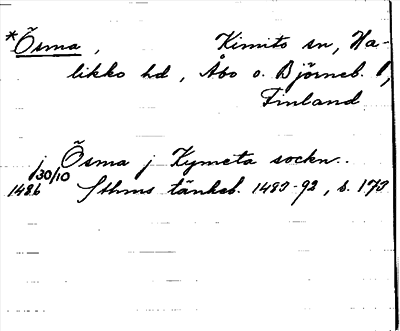 *Õsma, Kimito sn, Ha-
likko hd, Åbo o. Björneb. l,
Finland
j Õsma j Kymeta sockn..
30/10
1486 Sthms tänkeb. 1483-92, s. 173